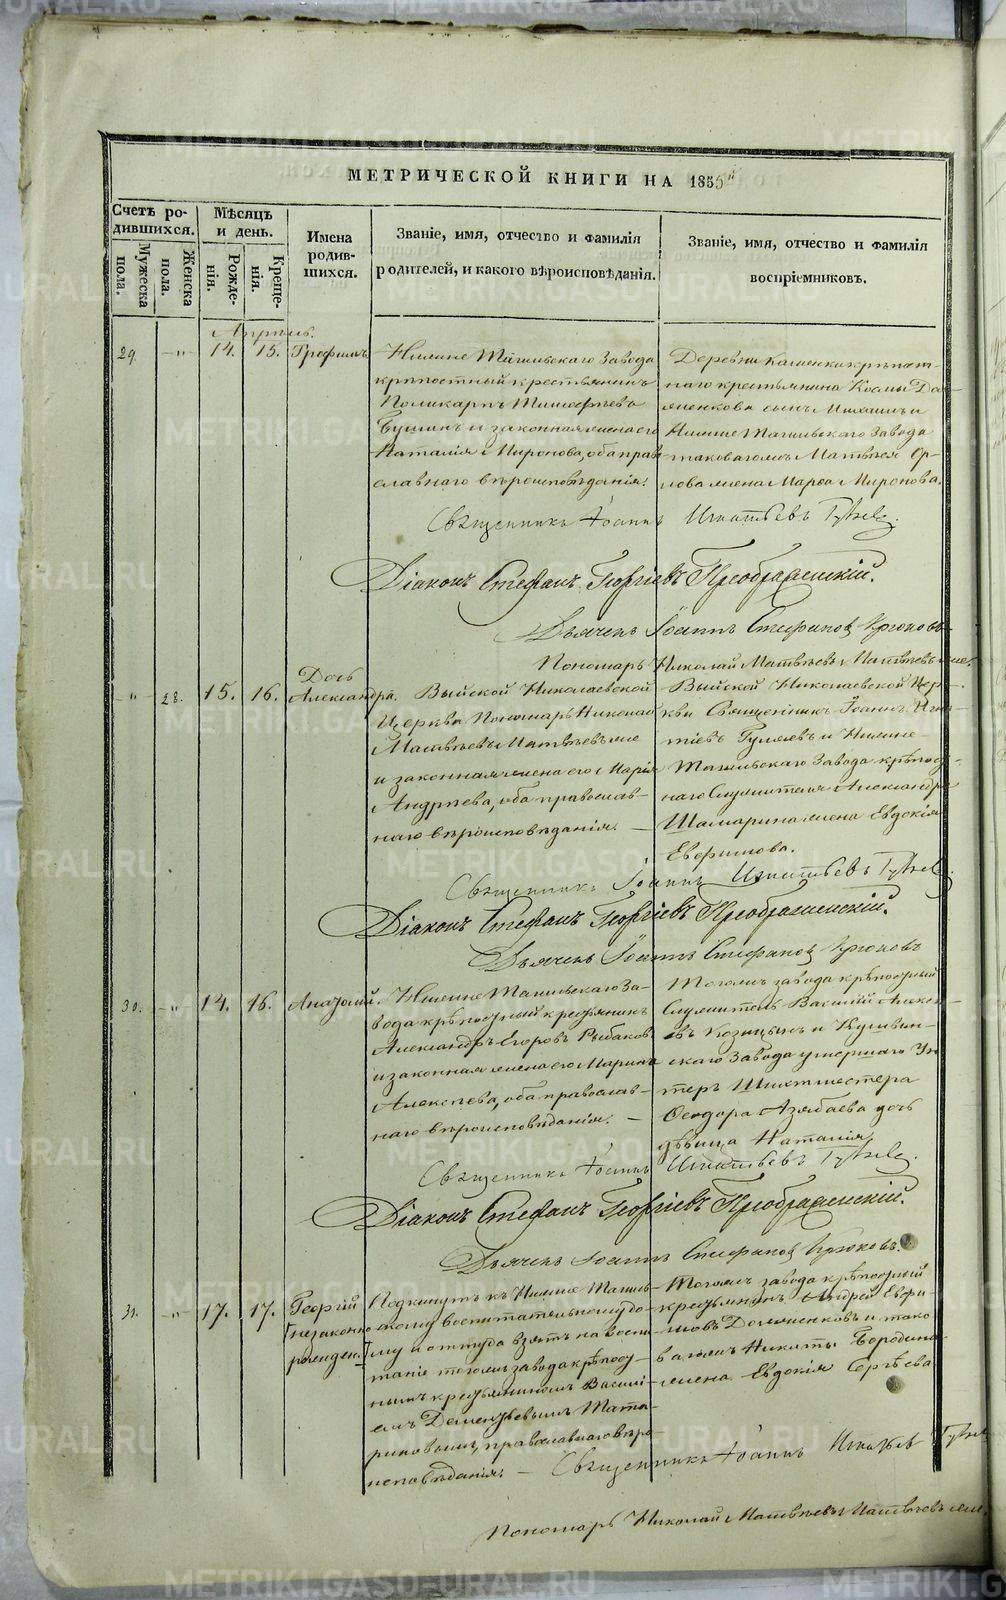 МЕТРИЧЕСКОЙ КНИГИ НА 1855й
Счетъ ро-
дившихся.
Мужеска
пола.
Женска
пола.
Мѣсяцъ
и день.
Рожде-
нія.
Креще-
нія.
Имена
родив-
шихся.
Званіе, имя, отчество и фамилія
родителей, и какого вѣроисповѣданія.
Званіе, имя, отчество и фамилія
воспріемниковъ.
Апрѣль.
29. -"- 14. 15. Трофимъ
Нижне Тагильскаго Завода
крѣпостный крестьянинъ
Поликарпъ Тимофѣевъ
и законная жена его
Наталія Миронова, оба право-
славнаго вѣроисповѣданія.
Деревни Каменки крѣпост-
наго крестьянина Космы До-
менкова сынъ Михаилъ и
Нижне Тагильскаго Завода
таковагожъ Матвѣя Ор-
лова жена Марѳа Миронова.
Священникъ Іоаннъ Игнатьевъ Гуляевъ.
Діаконъ Стефанъ Георгіевъ Преображенскій.
Дьячекъ Іоаннъ Стефановъ Крюковъ
Пономарь Николай Матвѣевъ
-"- 28. 15. 16. Дочь
Александра.
Выйской Николаевской
Церкви Пономарь Николай
Матвѣевъ
и законная жена его Марія
Андреева, оба православ-
наго вѣроисповѣданія. —
Выйской Николаевской Цер-
кви Священникъ Іоаннъ Игна-
тіевъ Гуляевъ и Нижне-
Тагильскаго Завода крѣпост-
наго Служителя Александра
Шамарина жена Евдокія
Евфимова.
Священникъ Іоаннъ Игнатьевъ Гуляевъ
Діаконъ Стефанъ Георгіевъ Преображенскій.
Дьячекъ Іоаннъ Стефановъ Крюковъ
30. -"- 14. 16. Анатолій.
Нижне Тагильскаго За-
вода крѣпостный крестьянинъ
Александръ Егоровъ Рыбаковъ
и законная жена его Марина
Алексѣева, оба православ-
наго вѣроисповѣданія. —
Тогожъ завода крѣпостный
Служитель Василій Алексѣ-
евъ Козицынъ и Кушвин-
скаго Завода умершаго Ун-
теръ Шихтмейстера
Ѳеодора Азябаева дочь
дѣвица Наталія
Священникъ Іоаннъ Игнатьевъ Гуляевъ.
Діаконъ Стефанъ Георгіевъ Преображенскій.
Дьячекъ Іоаннъ Стефановъ Крюковъ.
31. -"- 17. 17. Георгій
[незаконно
рожден.]
Подкинутъ къ Нижне Тагиль-
скому воспитательному до-
му и оттуда взятъ на воспи-
таніе тогожъ завода крѣпост-
нымъ крестьяниномъ Василі-
емъ Дементьевымъ Тата-
риновымъ, православнаго вѣро-
исповѣданія. —
Тогожъ завода крѣпостный
крестьянинъ Андрей Евфи-
мовъ Доменковъ и тако-
вагожъ Никиты Бородина
жена Евдокія Сергѣева
Священникъ Іоаннъ Игнатьевъ Гуляевъ
Пономарь Николай Матвѣевъ
METRIKI.GASO-URAL.RU